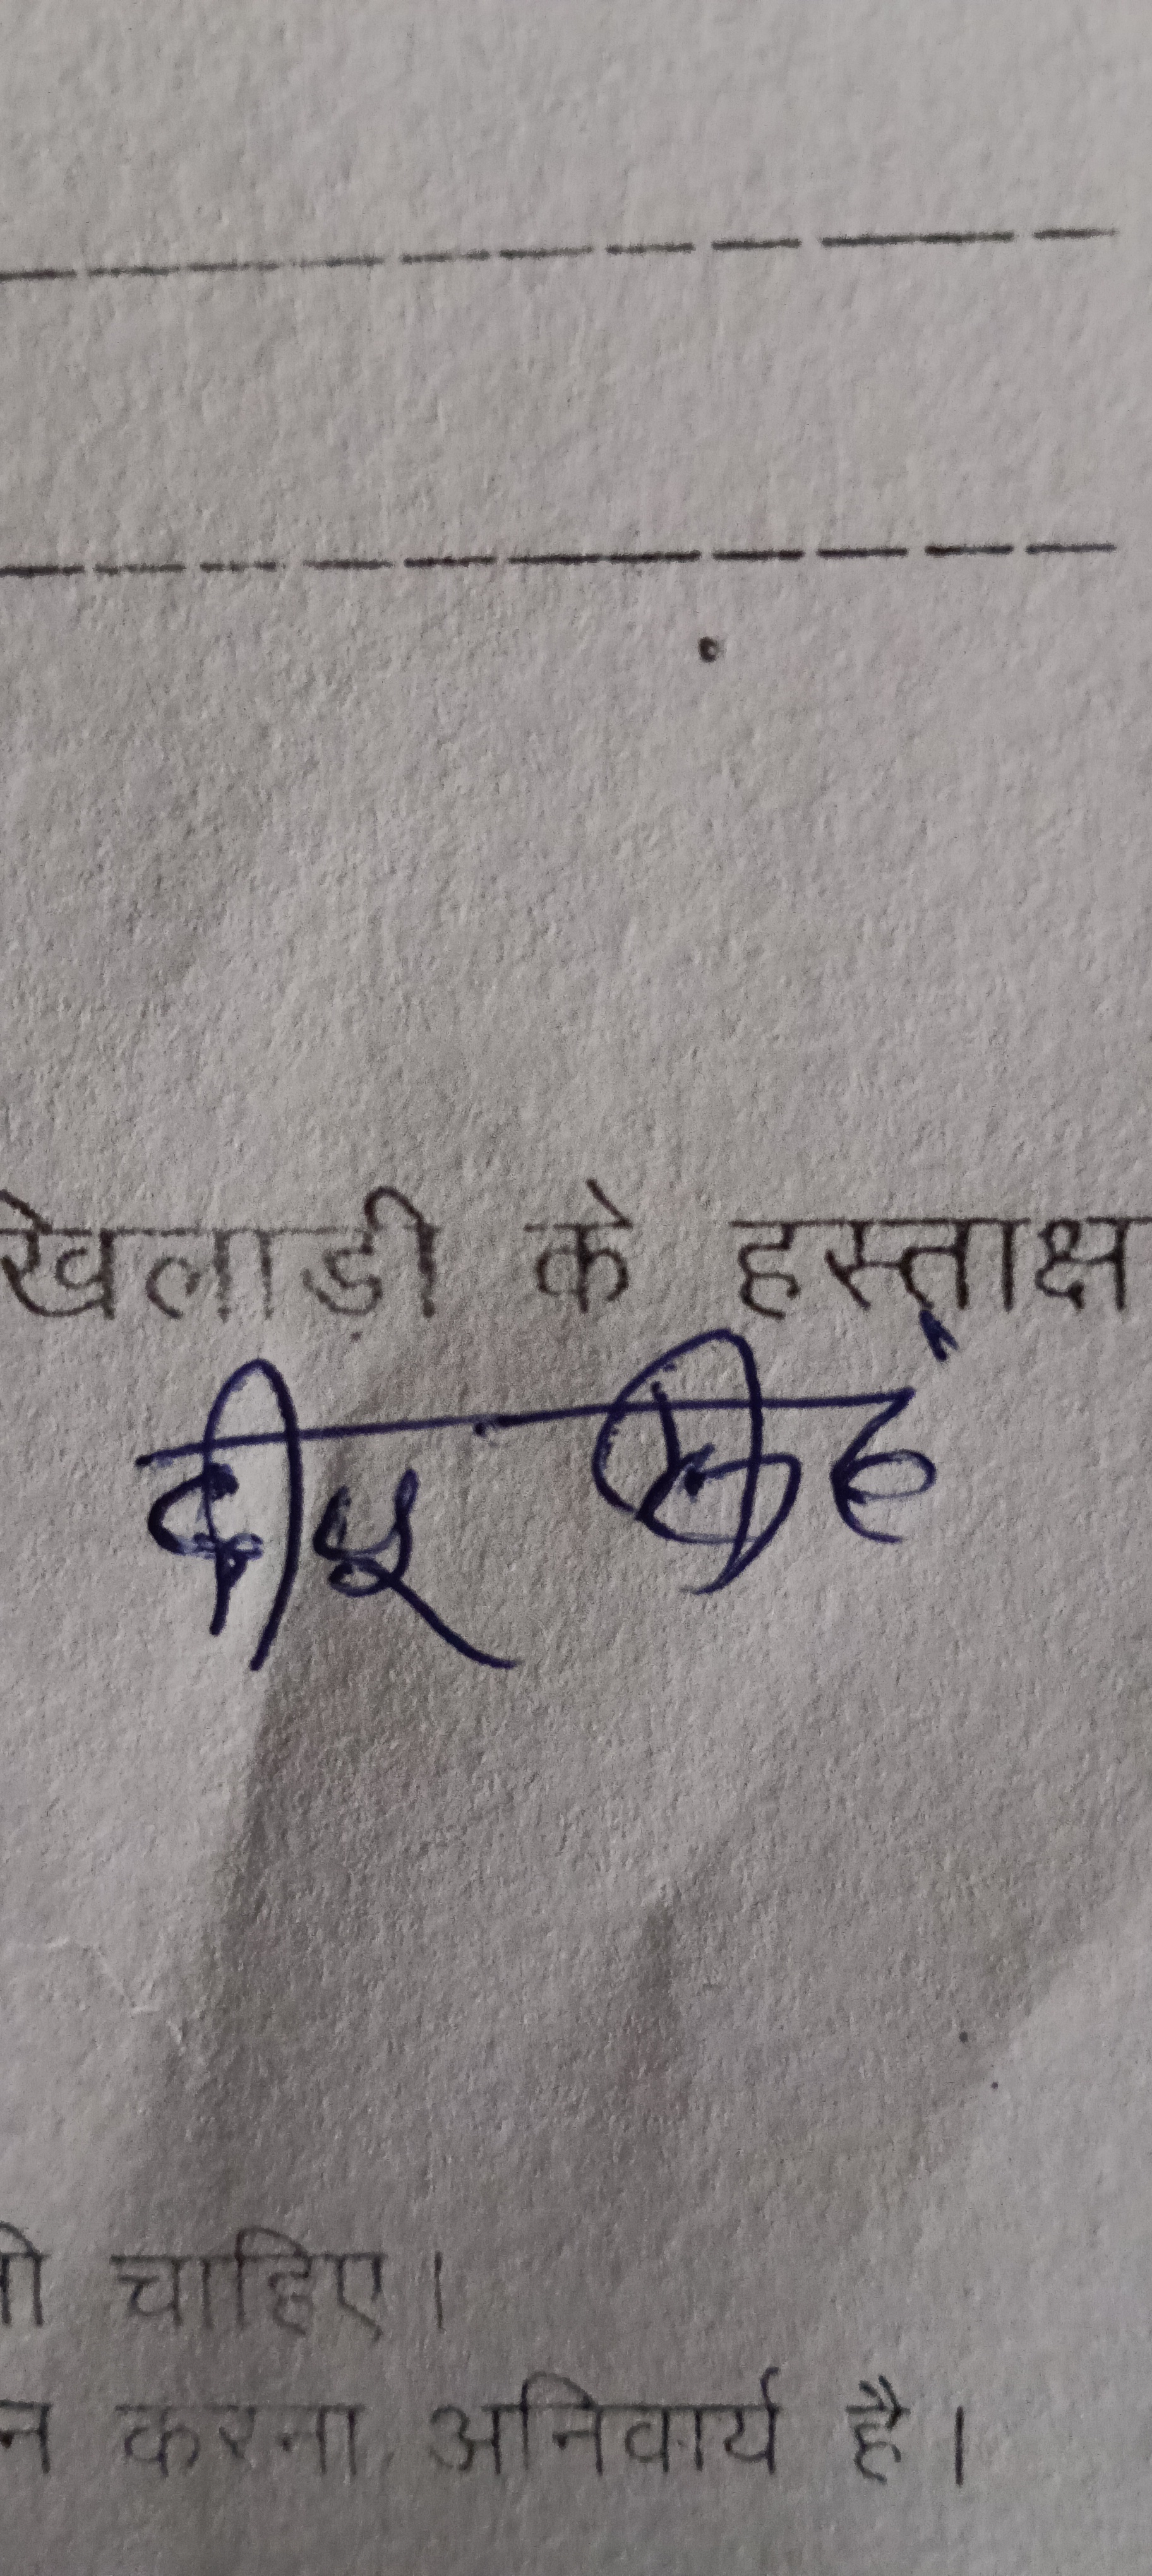 खिलाड़ी के हस्ताक्ष
दीपू सिंह
चाहिए।
न करना अनिवार्य है।